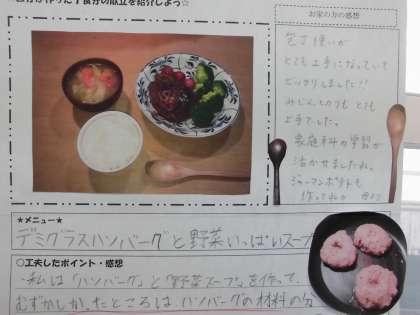 自分が作った1食分の献立を紹介しよう☆
お家の方の感想
包丁使いが
とても上手になっていて
びっくりしました!!
みじん切りも とても
上手でした。
家庭科の学習が
活かせましたね。
ジャーマンポテトも
作ってね
★メニュー★
デミグラスハンバーグと野菜いっぱいスープ
○工夫したポイント・感想
・私は「ハンバーグ」と「野菜スープ」を作って、
むずかしかったところはハンバーグの材料の分